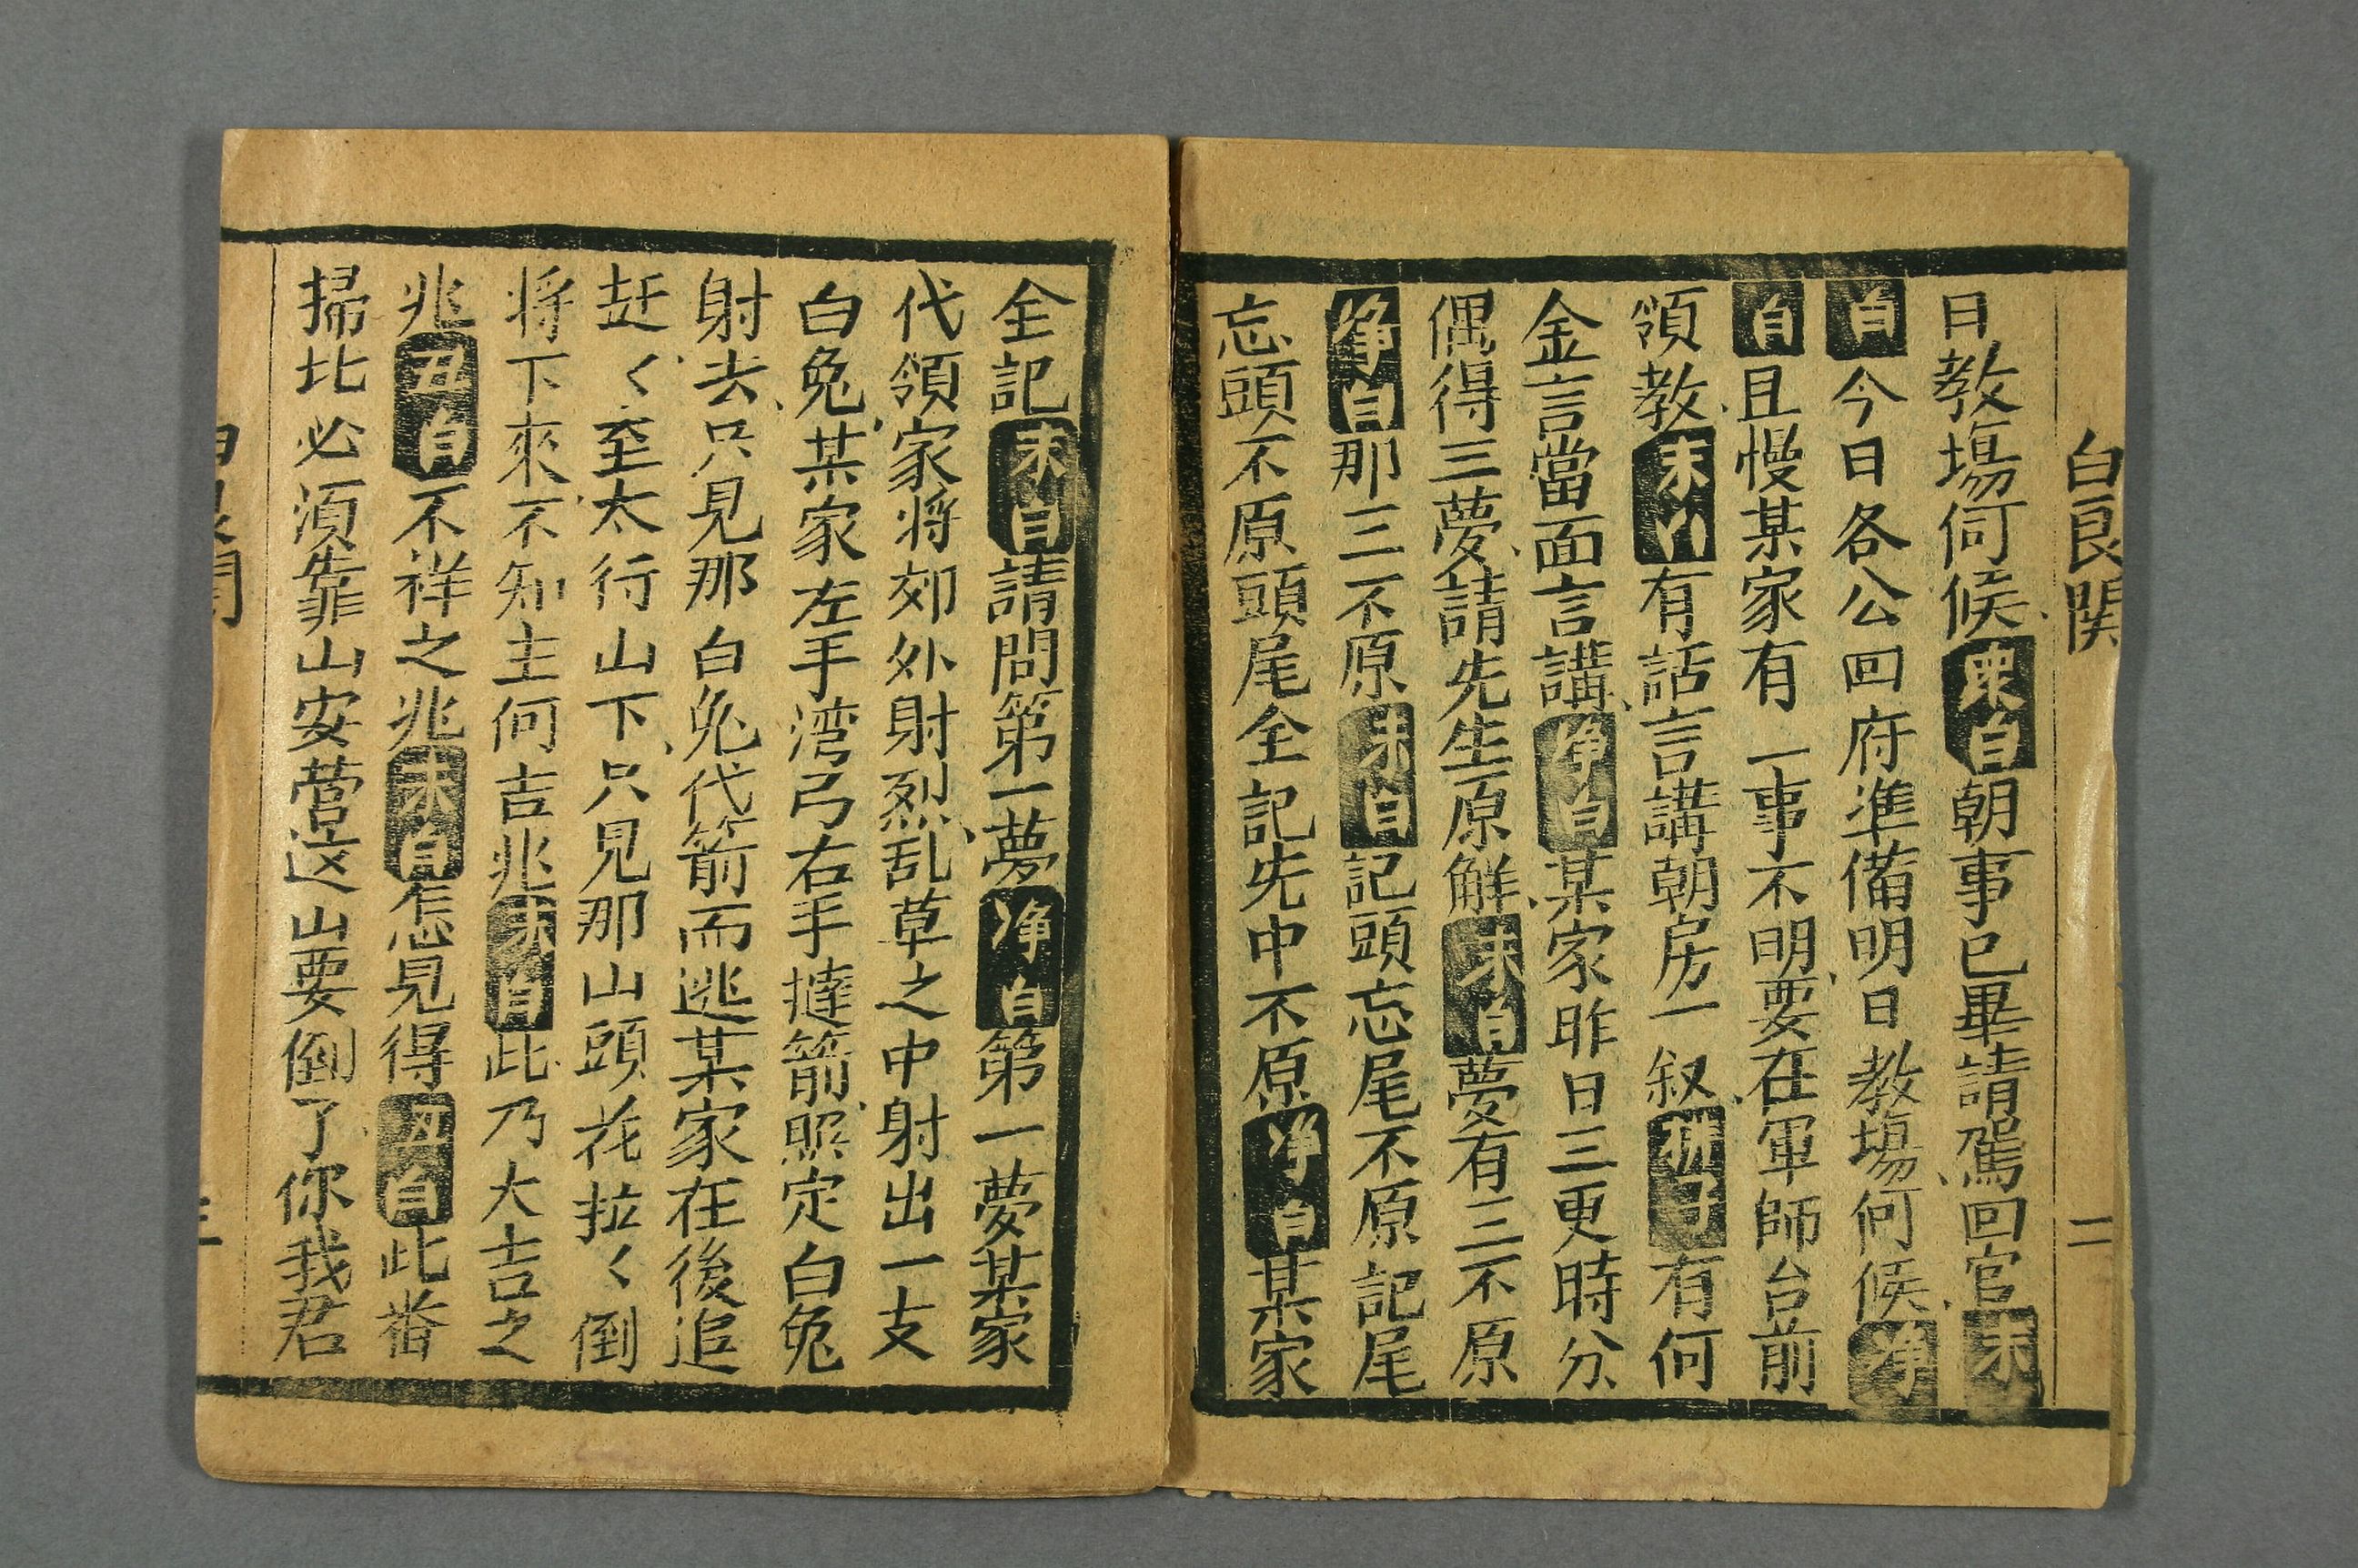 白良関
二
日教塲伺候衆白朝事已畢請駕回宫末
白今日各公回府準備明日教塲伺候净
白且慢某家有一事不明要在軍師台前
領教末白有話言講朝房一叙有何
金言當面言講净白某家昨日三更時分
偶得三夢請先生原解末白夢有三不原
净白那三不原末白記頭忘尾不原記尾
忘頭不原頭尾全記先中不原净白某家
全記末白請問第一夢净白第一夢某家
代領家将郊外射烈乱草之中射出一支
白兔某家左手湾弓右手撻箭照定白兔
射去只見那白兔代箭而逃某家在後追
赶く至太行山下只見那山頭花拉く倒
将下來不知主何吉兆末白此乃大吉之
兆丑白不祥之兆末白怎見得丑白此番
掃北必須靠山安营这山要倒了你我君
三